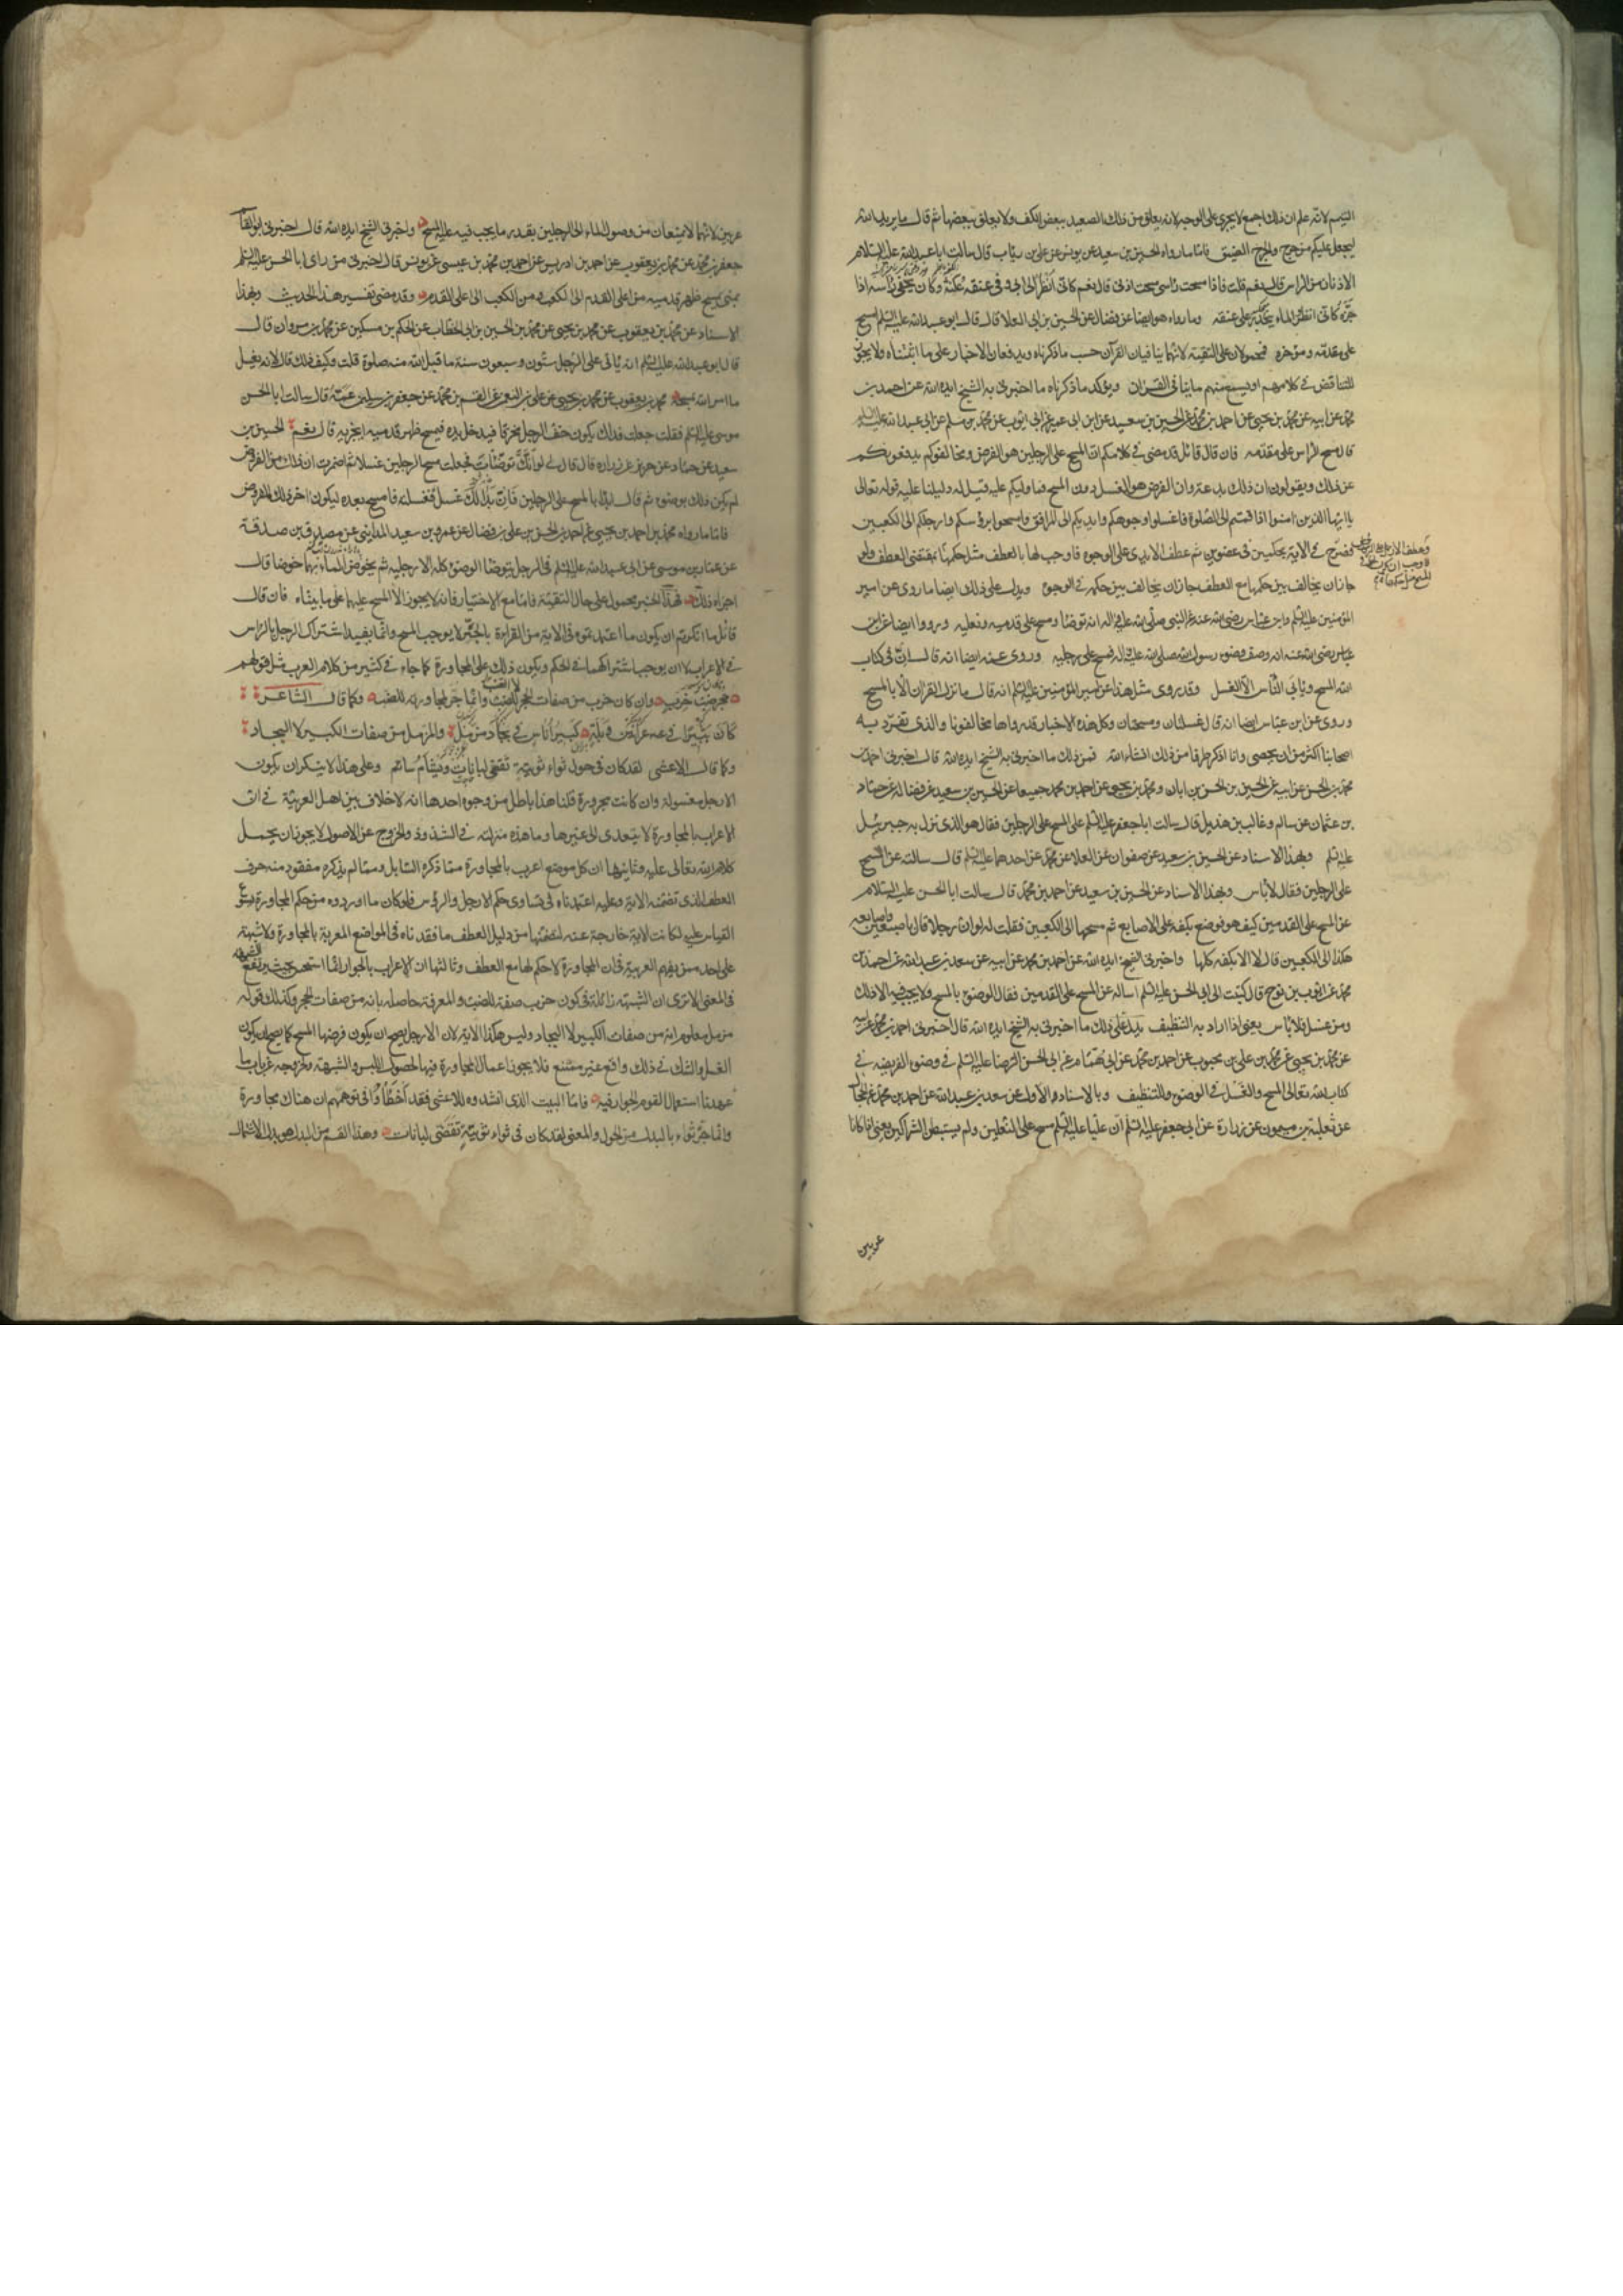 التيمم لانه علم ان ذلك اجمع لا يجرى على الوجه لانه يعلق من ذلك الصعيد ببعض الكف ولا يعلق ببعضها ثم قال ما يريد الله
ليجعل عليكم من حرج والحرج الضيق فاما ما رواه الحسين بن سعيد عن يونس عن علي بن رئاب قال سالت ابا عبد الله عليه السلام
الاذنان من الراس قال نعم قلت فاذا مسحت راسى مسحت اذنى قال نعم كانى انظر الى ابى وفى عنقه عكنة وكان يحفى راسه اذا
جزه كانى انظر الماء ينحدر على عنقه وما رواه هو ايضا عن فضالة عن الحسين بن ابى العلا قال قال ابو عبد الله عليه السلم امسح
على مقدمه ومؤخره فمحمولان على التقية لانهما ينافيان القرآن حسب ما ذكرناه ويدفعان الاخبار على ما اثبتناه ولا يجوز
التناقض فى كلامهم او يسمع منهم ما ينافى القران ويؤكد ما ذكرناه ما اخبرنى به الشيخ ايده الله عن احمد بن
محمد عن ابيه عن محمد بن يحيى عن احمد بن محمد عن الحسين بن سعيد عن ابن ابى عمير عن ابى ايوب عن محمد بن مسلم عن ابى عبد الله عليه السلم
قال مسح الراس على مقدمه فان قال قائل قد مضى فى كلامكم ان المسح على الرجلين هو الفرض ومخالفوكم يدفعونكم
عن ذلك ويقولون ان ذلك بدعة وان الفرض هو الغسل دون المسح فما دليلكم عليه قيل له دليلنا عليه قوله تعالى
يا ايها الذين امنوا اذا قمتم الى الصلوة فاغسلوا وجوهكم وايديكم الى المرافق وامسحوا برؤسكم وارجلكم الى الكعبين
فصرح فى الاية بحكمين فى عضوين ثم عطف الايدى على الوجوه فاوجب لها بالعطف مثل حكمها بمقتضى العطف ولو
جاز ان يخالف بين حكمها مع العطف جاز ان يخالف بين حكم فى الوجوه ويدل على ذلك ايضا ما روى عن امير
المؤمنين عليه السلم وابن عباس رضى الله عنه عن النبى صلى الله عليه واله انه توضأ ومسح على قدميه ونعليه ورووا ايضا عن ابن
عباس رضى الله عنه انه وصف وضوء رسول الله صلى الله عليه واله فمسح على رجليه وروى عنه ايضا انه قال ان فى كتاب
الله المسح ويابى الناس الا الغسل وقد روى مثل هذا عن امير المؤمنين عليه السلم انه قال ما نزل القران الا بالمسح
وروى عن ابن عباس ايضا انه قال غسلتان ومسحتان وكل هذه الاخبار قد رواها مخالفونا والذى تفرد به
اصحابنا اكثر من ان يحصى وانا اذكر طرفا من ذلك انشاء الله فمن ذلك ما اخبرنى به الشيخ ايده الله قال اخبرنى احمد بن
محمد بن الحسن عن ابيه عن الحسين بن الحسن بن ابان ومحمد بن يحيى عن احمد بن محمد جميعا عن الحسين بن سعيد عن فضالة عن حماد
بن عثمان عن سالم وغالب بن هذيل قال سالت ابا جعفر عليه السلم على المسح على الرجلين فقال هو الذى نزل به جبرئيل
عليه السلم وبهذا الاسناد عن الحسين بن سعيد عن صفوان عن العلا عن محمد عن احدهما عليه السلم قال سالته عن المسح
على الرجلين فقال لا باس وبهذا الاسناد عن الحسين بن سعيد عن احمد بن محمد قال سالت ابا الحسن عليه السلام
عن المسح على القدمين كيف هو فوضع بكفه على الاصابع ثم مسحها الى الكعبين فقلت له لو ان رجلا قال باصبعين من اصابعه
هكذا الى الكعبين قال لا الا بكفه كلها واخبرنى الشيخ ايده الله عن احمد بن محمد عن ابيه عن سعد بن عبد الله عن احمد بن
محمد عن ايوب بن نوح قال كتبت الى ابى الحسن عليه السلم اساله عن المسح على القدمين فقال الوضوء بالمسح ولا يجب فيه الا ذلك
ومن غسل فلا باس يعنى اذا اراد به التنظيف يدل على ذلك ما اخبرنى به الشيخ ايده الله قال اخبرنى احمد بن محمد عن ابيه
عن محمد بن يحيى عن محمد بن على بن محبوب عن احمد بن محمد عن ابى همام عن ابى الحسن الرضا عليه السلم فى وضوء الفريضة فى
كتاب الله تعالى المسح والغسل فى الوضوء للتنظيف وبالاسناد الاول عن سعد بن عبد الله عن احمد بن محمد عن
عن ثعلبة بن ميمون عن زرارة عن ابى جعفر عليه السلم ان عليا عليه السلم مسح على النعلين ولم يستبطن الشراكين يعنى اذا كانا
عربيين
عربيين لانهما لا يمنعان من وصول الماء الى الرجلين بقدر ما يجب فيه عليه المسح واخبرنى الشيخ ايده الله قال اخبرنى ابو القاسم
جعفر بن محمد عن محمد بن يعقوب عن احمد بن ادريس عن احمد بن محمد بن عيسى عن يونس قال اخبرنى من راى ابا الحسن عليه السلم
بمنى يمسح ظهر قدميه من اعلى القدم الى الكعب ومن الكعب الى اعلى القدم وقد مضى تفسير هذا الحديث وبهذا
الاسناد عن محمد بن يعقوب عن محمد بن يحيى عن محمد بن الحسين بن ابى الخطاب عن الحكم بن مسكين عن محمد بن مروان قال
قال ابو عبد الله عليه السلم انه ياتى على الرجل ستون وسبعون سنة ما قبل الله منه صلوة قلت وكيف ذلك قال لانه يغسل
ما امر الله بمسحه محمد بن يعقوب عن محمد بن يحيى عن على بن عن القسم بن محمد عن جعفر بن سليمن عمه قال سالت ابا الحسن
موسى عليه السلم فقلت جعلت فداك يكون خف الرجل مخرقا فيدخل يده فيمسح ظهر قدميه ايجزيه قال نعم الحسين بن
سعيد عن حماد عن حريز عن زرارة قال قال لى لو انك توضأت فجعلت مسح الرجلين غسلا ثم اضمرت ان ذلك من الفرض
لم يكن ذلك بوضوء ثم قال ابدا بالمسح على الرجلين فان بدا لك غسل فغسلته فامسح بعده ليكون اخر ذلك المفروض
فاما ما رواه محمد بن احمد بن يحيى عن احمد بن الحسن بن على بن فضال عن عمرو بن سعيد المداينى عن مصدق بن صدقة
عن عمار بن موسى عن ابى عبد الله عليه السلم فى الرجل يتوضأ الوضوء كله الا رجليه ثم يخوض الماء بهما خوضا قال
اجزاه ذلك فهذا الخبر محمول على حال التقية فاما مع الاختيار فانه لا يجوز الا المسح عليهما على ما بيناه فان قال
قائل ما انكرتم ان يكون ما اعتمدتموه فى الاية من القراءة بالجر لا يوجب المسح وانما يفيد اشتراك الرجل بالراس
فى الاعراب لا ان يوجب اشتراكهما فى الحكم ويكون ذلك على المجاورة كما جاء فى كثير من كلام العرب مثل قولهم
جحر ضب خرب وان كان خرب من صفات الحجر لا الضب وانما جر لمجاورته للضب وكما قال الشاعر
كان ثبيرا فى عرانين وبله كبير اناس فى بجاد مزمل والمزمل من صفات الكبير لا البجاد
وكما قال الاعشى لقد كان فى حول ثواء ثويته تقضى لبانات ويسأم سائم وعلى هذا لا ينكر ان يكون
الارجل مغسولة وان كانت مجرورة قلنا هذا باطل من وجوه احدها انه لا خلاف بين اهل العربية فى ان
الاعراب بالمجاورة لا يتعدى الى غيرها وما هذه منزلته فى الشذوذ والخروج عن الاصول لا يجوز ان يحمل
كلام الله تعالى عليه وثانيها ان كل موضع اعرب بالمجاورة مما ذكره السايل ومما لم يذكره مفقود منه حرف
العطف الذى تضمنه الاية وعليه اعتمدناه فى تساوى حكم الارجل والرؤس فلو كان ما اورده من حكم المجاورة يسوغ
القياس عليه لكانت الاية خارجة عنه لتضمنها من دليل العطف ما فقدناه فى المواضع المعربة بالمجاورة ولا شبهة
على احد ممن يفهم العربية فى ان المجاورة لا حكم لها مع العطف وثالثها ان الاعراب بالجوار انما استحسن بحيث يرتفع الشبهة
فى المعنى الا ترى ان الشبهة زائلة فى كون خرب صفة للضب والمعرفة حاصلة بانه من صفات الحجر وكذلك قوله
مزمل معلوم انه من صفات الكبير لا البجاد وليس هكذا الاية لان الارجل يصح ان يكون فرضها المسح كما يصح ان يكون
الغسل والشك فى ذلك واقع غير ممتنع فلا يجوز اعمال المجاورة فيها لحصول اللبس والشبهة ولخروجه عن باب ما
عهدنا استعمال القوم الجوار فيه فاما البيت الذى انشدوه للاعشى فقد اخطأوا فى توهمهم ان هناك مجاورة
وانما جر ثواء بالبدل من الحول والمعنى لقد كان فى ثواء ثويته تقضى لبانات وهذا القسم من البدل هو بدل الاشتمال